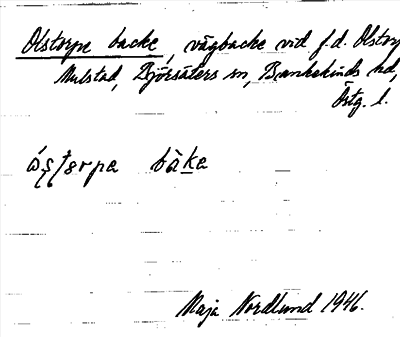 Olstorpe backe, vägbacke vid f.d. Olstorp
Mulstad, Björsäters sn, Bankekinds hd,
Östg. l.
bàka
Maja Nordlund 1946.